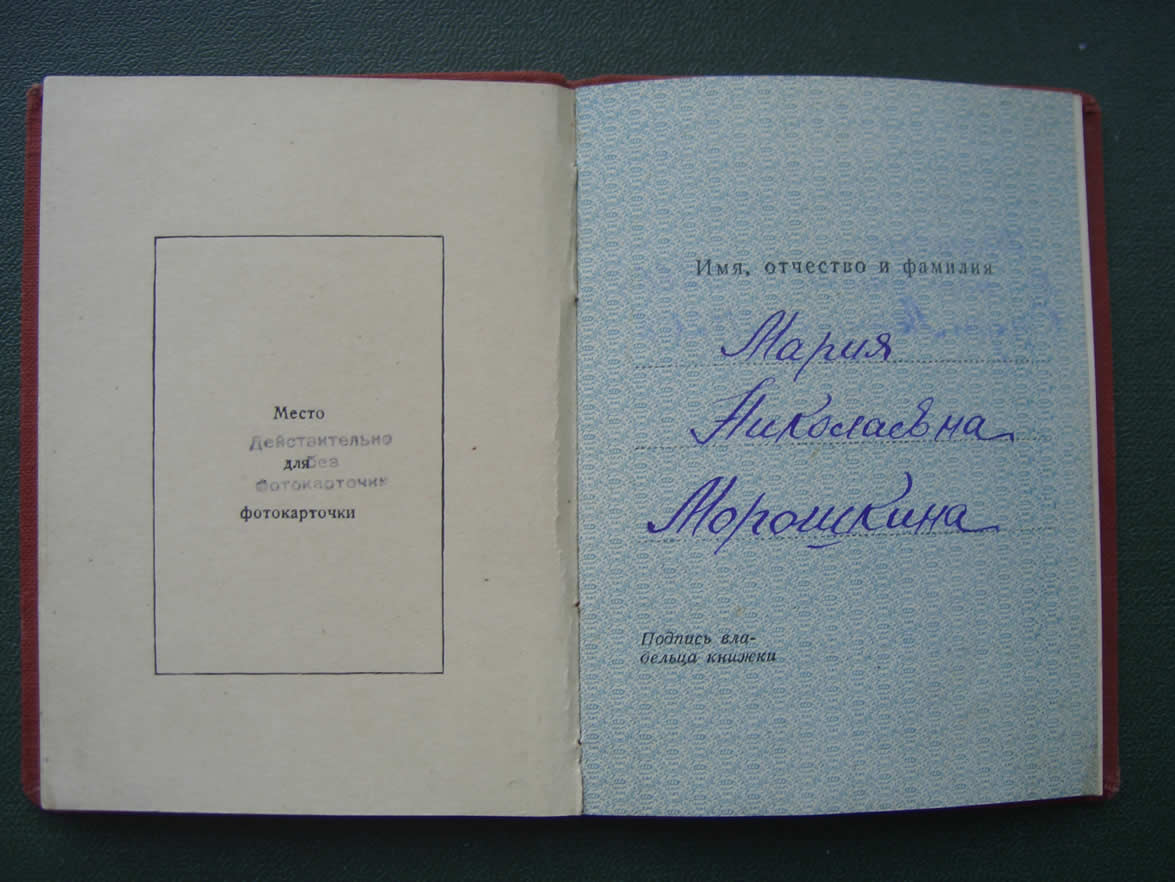 Место
Действительно
для
без
фотокарточки
фотокарточки
Имя, отчество и фамилия
Мария
Николаевна
Морошкина
Подпись вла-
дельца книжки